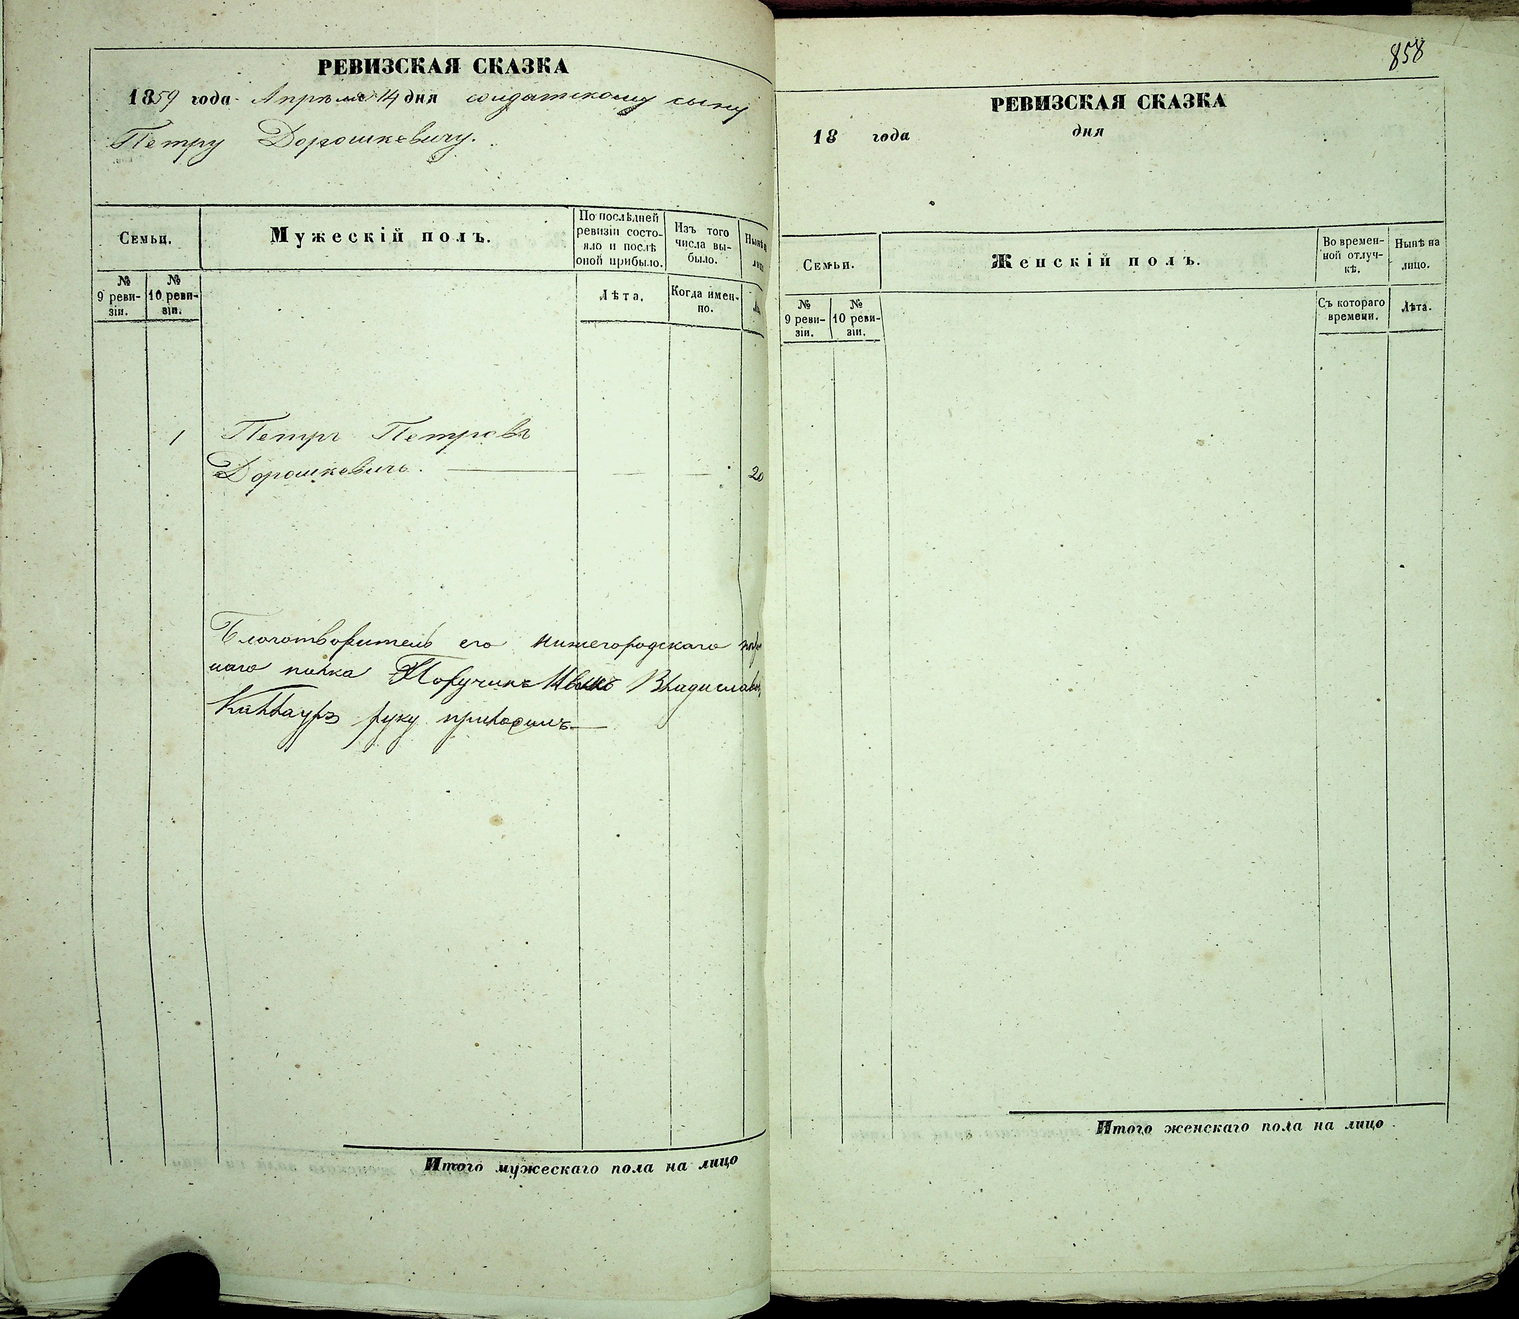 РЕВИЗСКАЯ СКАЗКА
1859 года Апреля 14 дня солдатскому сыну
Петру Дорошкевичу.
Семьи.
Мужескій полъ.
По послѣдней ревизіи состояло и послѣ оной прибыло.
Изъ того числа выбыло.
Нынѣ
№ 9 ревизіи.
№ 10 ревизіи.
Лѣта.
Когда именно.
1 Петръ Петровъ
Дорошкевичъ. 20
Благотворитель его Нижегородскаго
наго полка Поручикъ Иванъ Владиславовъ
руку приложилъ
Итого мужескаго пола на лицо
858
РЕВИЗСКАЯ СКАЗКА
18 года дня
Семьи.
Женскій полъ.
Во временной отлучкѣ.
Нынѣ на лицо.
№ 9 ревизіи.
№ 10 ревизіи.
Съ котораго времени.
Лѣта.
Итого женскаго пола на лицо